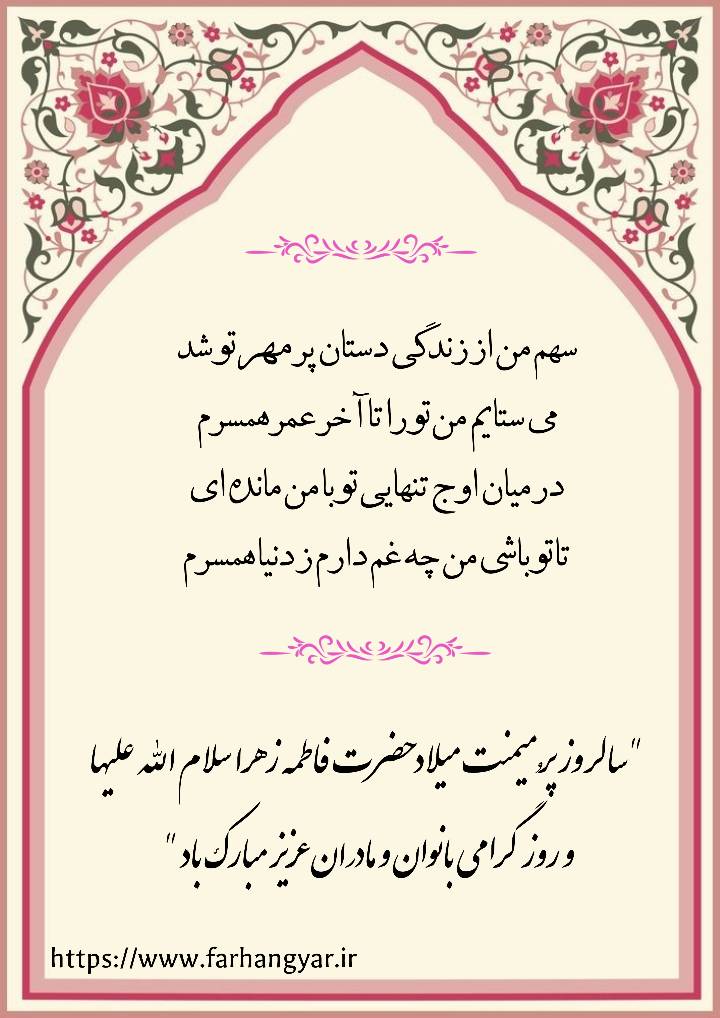 سهم من از زندگی دستان پر مهر تو شد
می ستایم من تو را تا آخر عمر همسرم
در میان اوج تنهایی تو با من مانده ای
تا تو باشی من چه غم دارم ز دنیا همسرم
"سالروز پرُ میمنت میلاد حضرت فاطمه زهرا سلام الله علیها
و روز گرامی بانوان و مادران عزیز مبارک باد"
https://www.farhangyar.ir